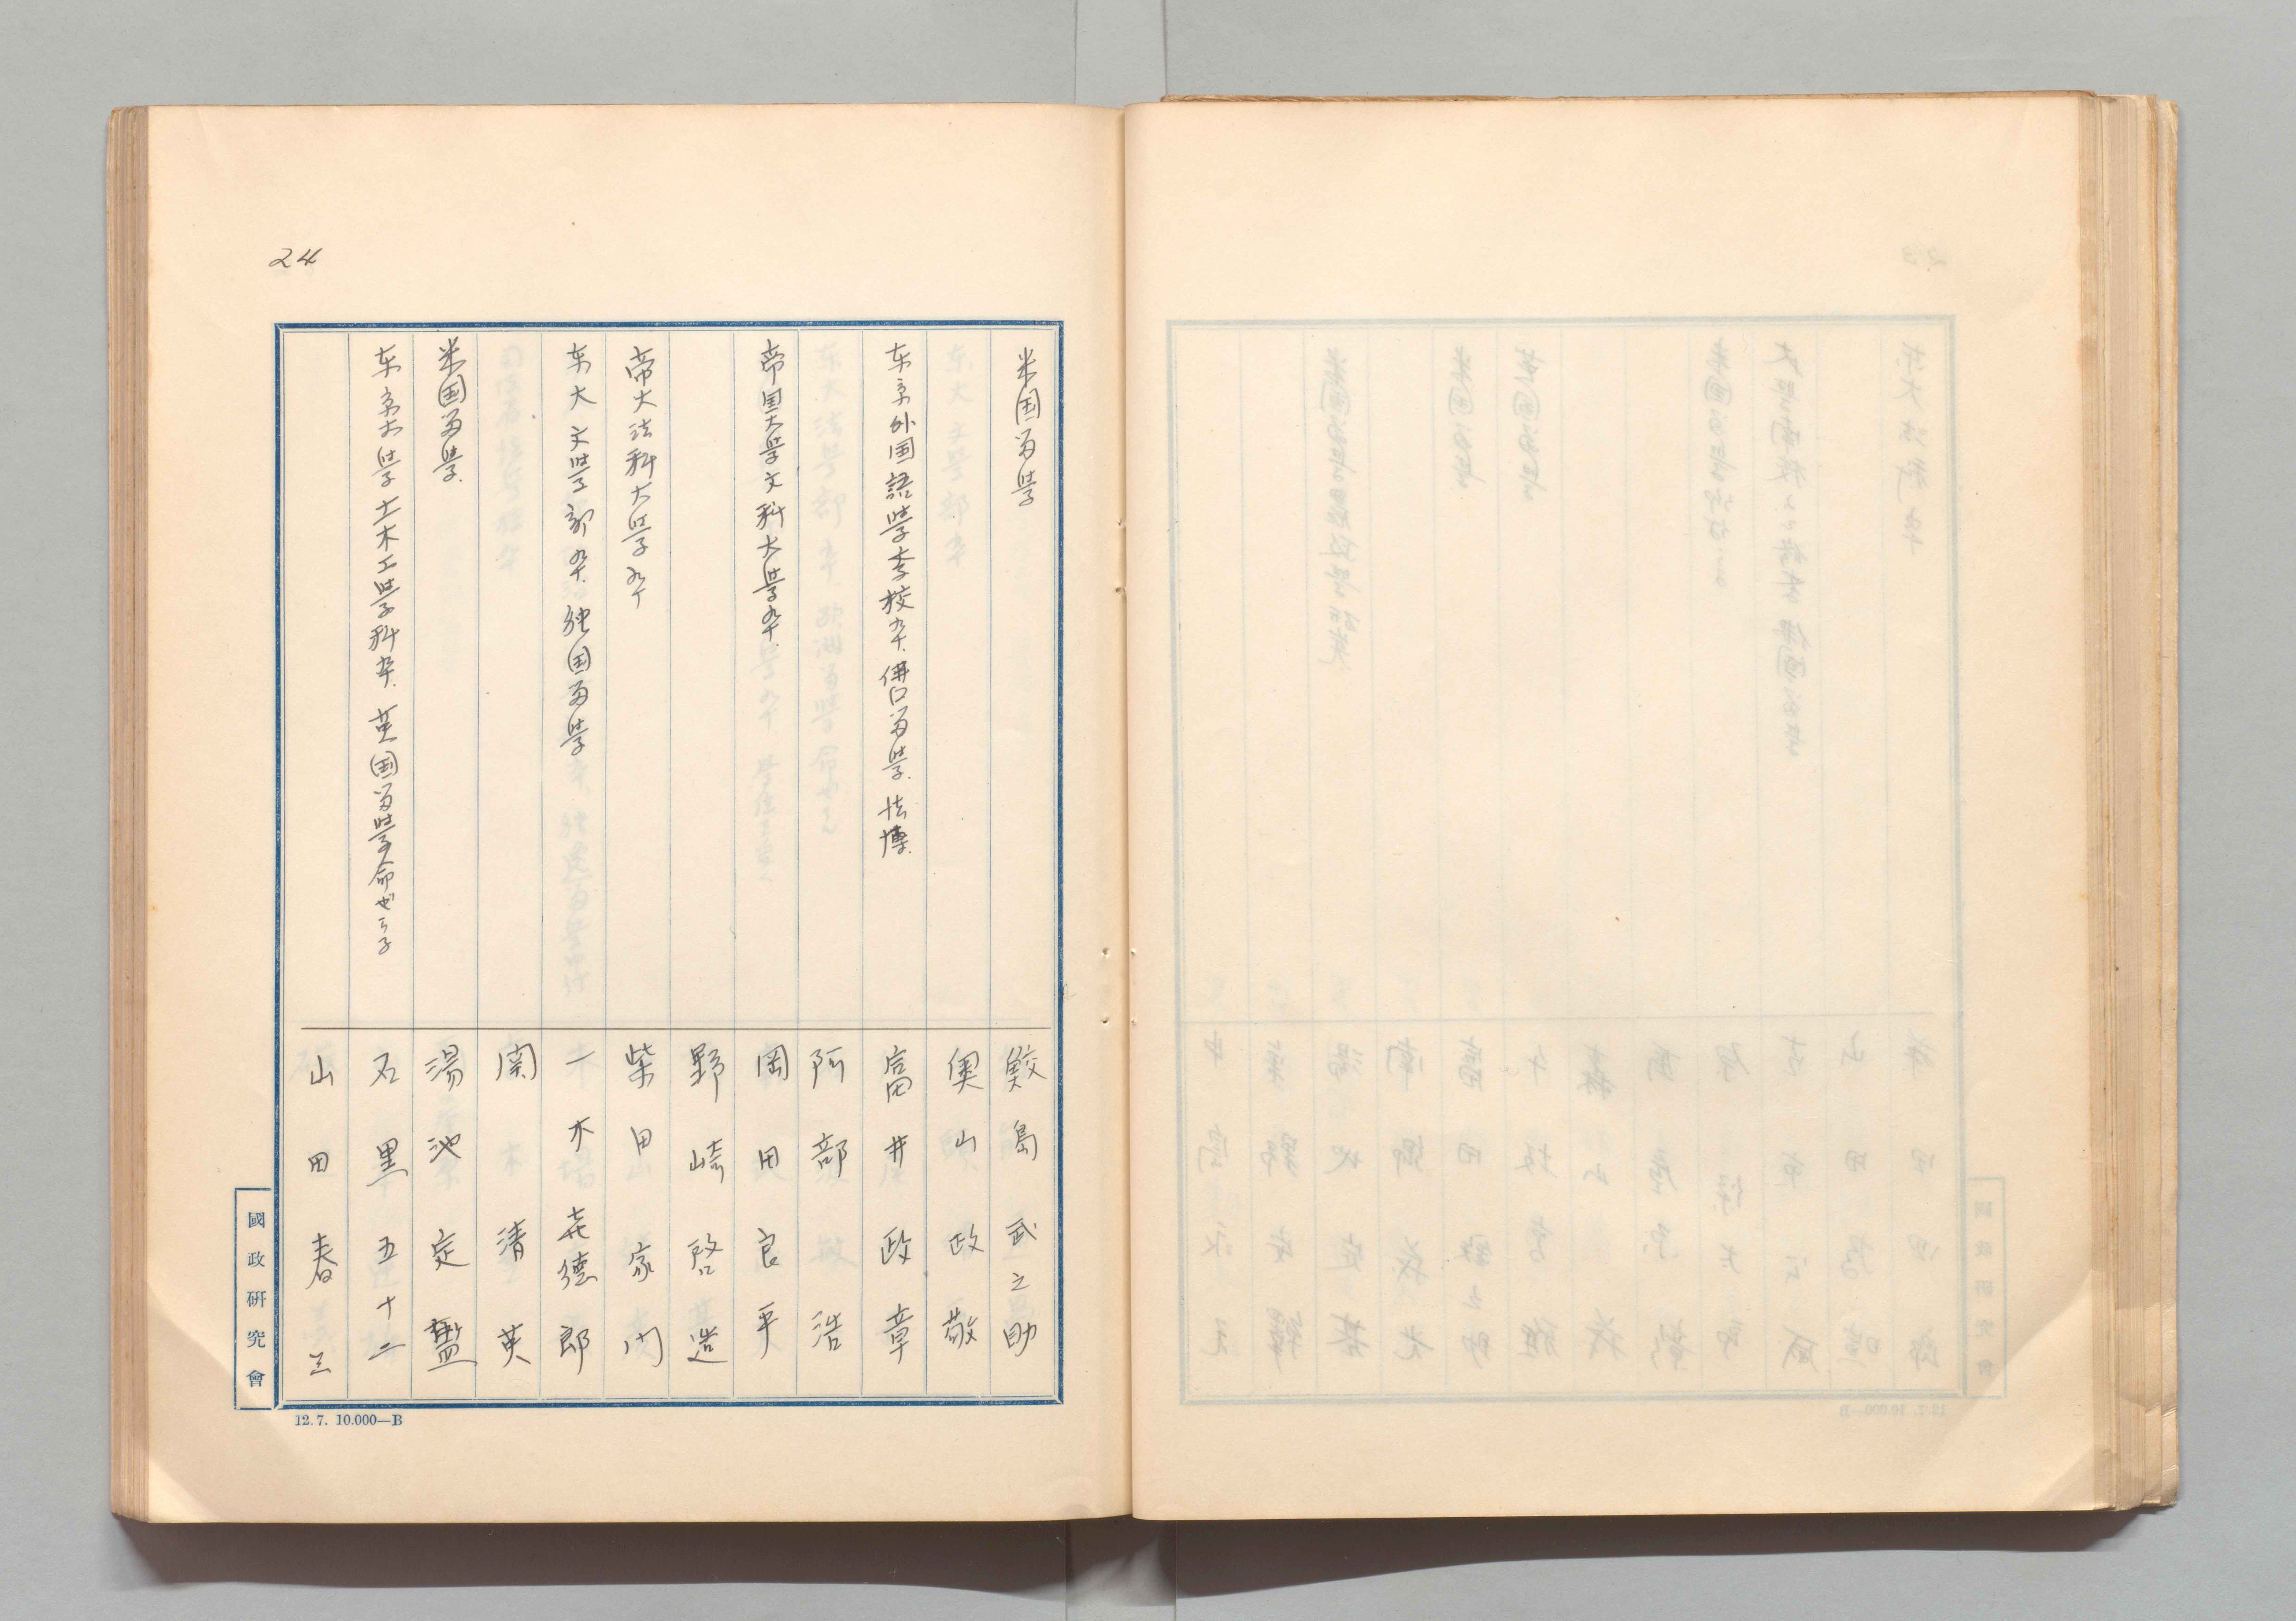 24
米国留学
鮫島武之助
奥山政敬
东京外国語学校卒.佛囗留学.法博.
富井政章
阿部浩
帝国大学文科大学卒.
岡田良平
野崎啓造
帝大法科大学卒
柴田家门
东大文学部卒.独国留学
一木㐂徳郎
南清英
米国留学.
湯池定盤
东京大学土木工学科卒.英国留学命ぜらる
石黒五十二
山田春三
國政研究會
12.7. 10.000—B